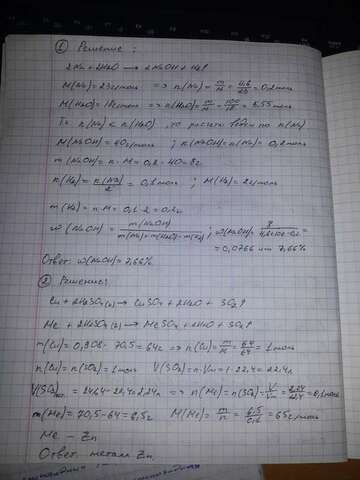 ① Решение:
2Na + 2H2O → 2NaOH + H2↑
M(Na) = 23 г/моль => n(Na) = m/M = 4,6/23 = 0,2 моль
M(H2O) = 18 г/моль => n(H2O) = m/M = 100/18 = 5,55 моль
Т.к n(Na) < n(H2O), то расчеты ведем по n(Na)
M(NaOH) = 40 г/моль ; n(NaOH) = n(Na) = 0,2 моль
m(NaOH) = n·M = 0,2·40 = 8г
n(H2) = n(Na)/2 = 0,1 моль ; M(H2) = 2 г/моль
m(H2) = n·M = 0,1·2 = 0,2г
ω(NaOH) = m(NaOH)/m(Na)+m(H2O)-m(H2) ; ω(NaOH) = 8/4,6+100-0,2 =
= 0,0766 или 7,66%
Ответ: ω(NaOH) = 7,66%
② Решение:
Cu + 2H2SO4(к) → CuSO4 + 2H2O + SO2↑
Me + 2H2SO4(к) → MeSO4 + 2H2O + SO2↑
m(Cu) = 0,908·70,5 = 64г n(Cu) = m/M = 64/64 = 1 моль
n(Cu) = n(SO2) = 1 моль V(SO2) = n·Vm = 1·22,4 = 22,4л
V(SO2) = 24,64-22,4 = 2,24л => n(Me) = n(SO2) = V/Vm = 2,24/22,4 = 0,1 моль
m(Me) = 70,5-64 = 6,5г M(Me) = m/n = 6,5/0,1 = 65 г/моль
Me – Zn
Ответ: металл Zn.